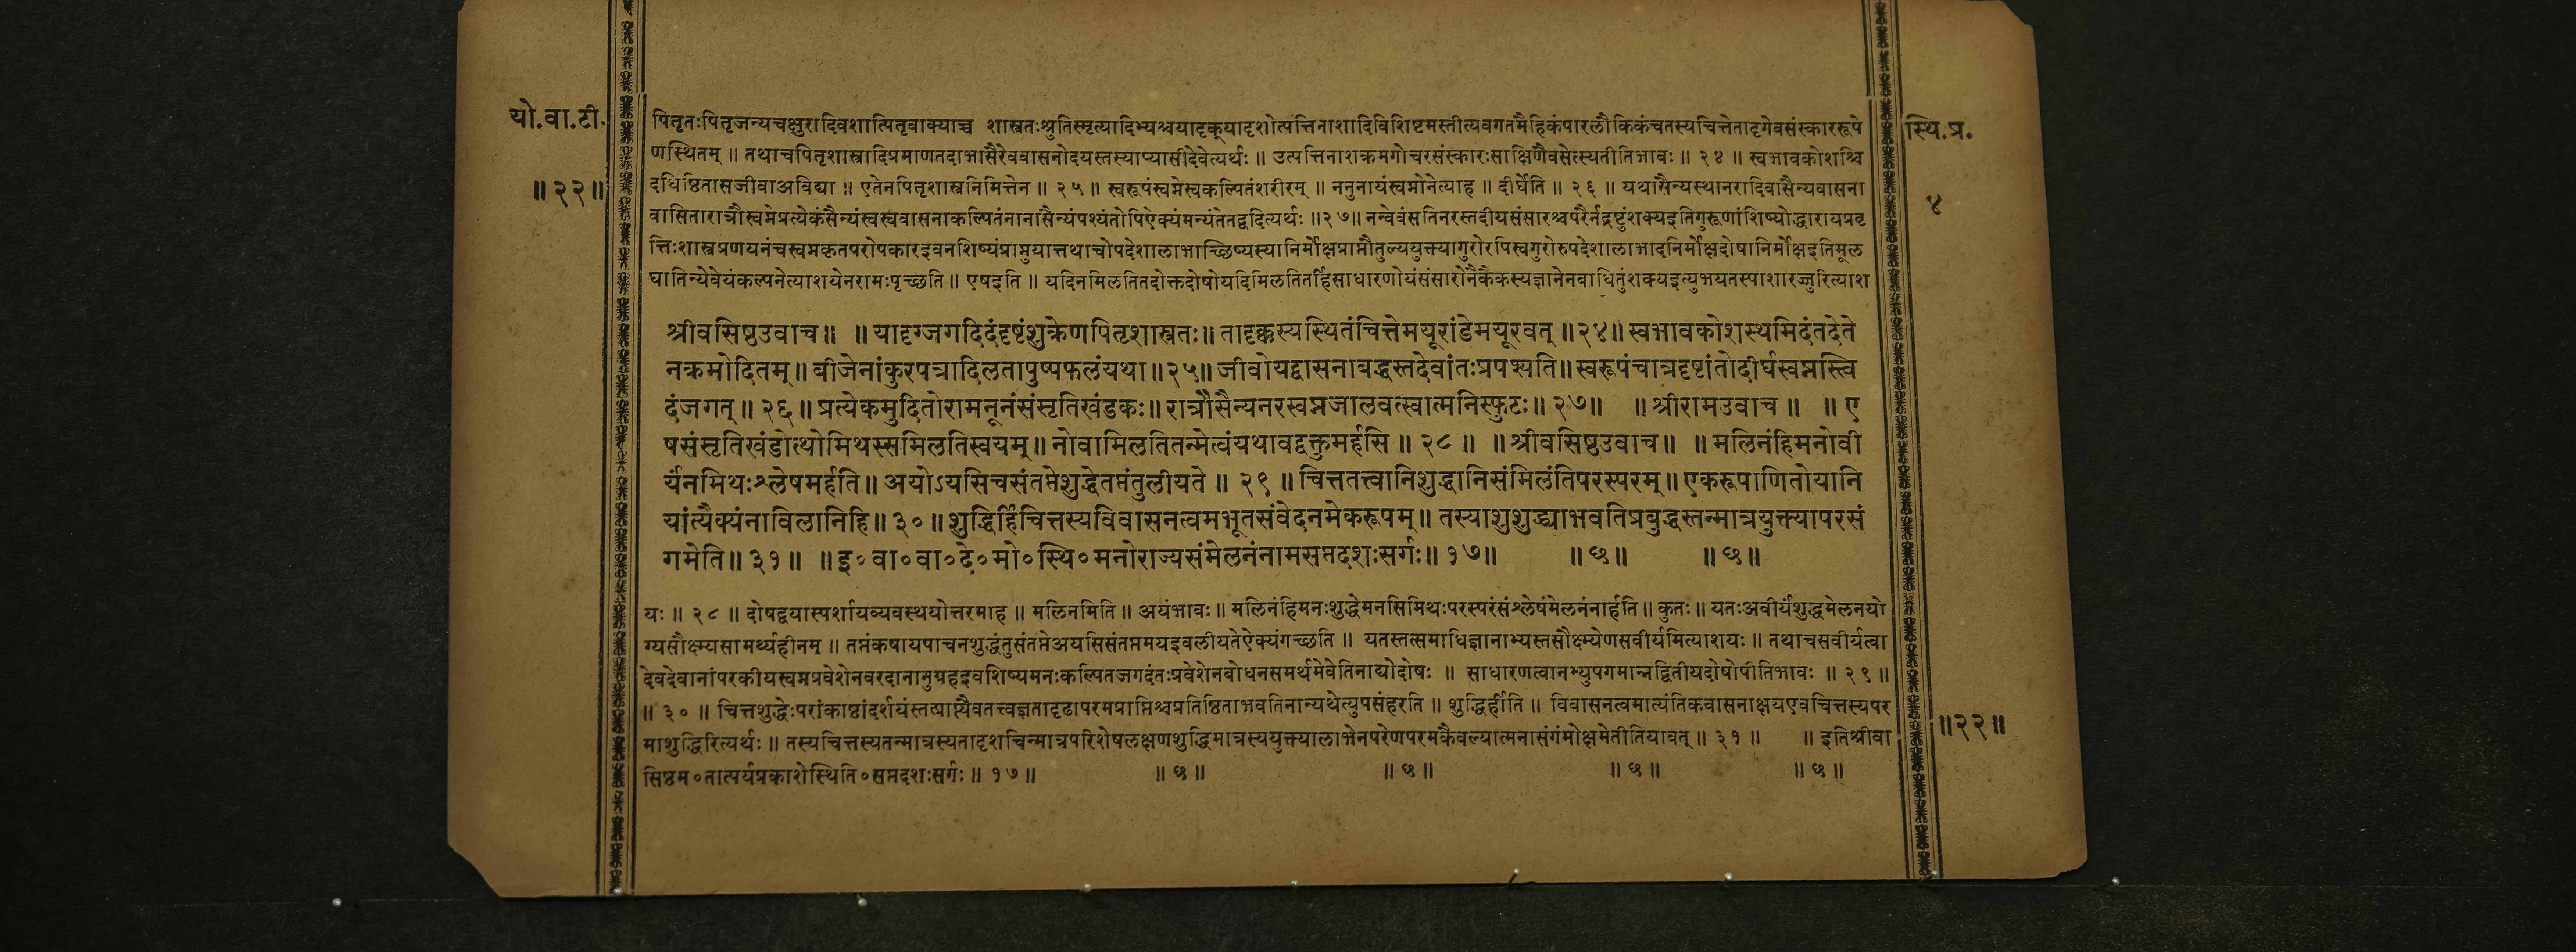 यो.वा.टी.
॥२२॥
स्थि.प्र.
४
पितृतःपितृजन्यचक्षुरादिवशात्पितृवाक्याच्च शास्त्रतःश्रुतिस्मृत्यादिभ्यश्चयादृक्यादृशोत्पत्तिनाशादिविशिष्टमस्तीत्यवगतमैहिकंपारलौकिकंचतस्यचित्तेतादृगेवसंस्काररूपे
णस्थितम् ॥ तथाचपितृशास्त्रादिप्रमाणतदाभासैरेववासनोदयस्तस्याप्यासीदेवेत्यर्थः ॥ उत्पत्तिनाशक्रमगोचरसंस्कारःसाक्षिणैवसेत्स्यतीतिभावः ॥ २४ ॥ स्वभावकोशश्चि
दधिष्ठितासजीवाअविद्या ॥ एतेनपितृशास्त्रनिमित्तेन ॥ २५ ॥ स्वरूपंस्वप्नेस्वकल्पितंशरीरम् ॥ ननुनायंस्वप्नोनेत्याह ॥ दीर्घेति ॥ २६ ॥ यथासैन्यस्थानरादिवासैन्यवासना
वासितारात्रौस्वप्नेप्रत्येकंसैन्यंस्वस्ववासनाकल्पितंनानासैन्यंपश्यंतोपिऐक्यंमन्यंतेतद्वदित्यर्थः ॥२७॥ नन्वेवंसतिनरस्तदीयसंसारश्चपरैर्नद्रष्टुंशक्यइतिगुरूणांशिष्योद्धारायप्रवृ
त्तिःशास्त्रप्रणयनंचस्वप्नकृतपरोपकारइवनशिष्यंप्राप्नुयात्तथाचोपदेशालाभाच्छिष्यस्यानिर्मोक्षप्राप्तौतुल्ययुक्त्यागुरोरपिस्वगुरोरुपदेशालाभादनिर्मोक्षदोषानिर्मोक्षइतिमूल
घातिन्येवेयंकल्पनेत्याशयेनरामःपृच्छति ॥ एषइति ॥ यदिनमिलतितदोक्तदोषोयदिमिलतितर्हिसाधारणोयंसंसारोनैकैकस्यज्ञानेनबाधितुंशक्यइत्युभयतस्पाशारज्जुरित्याश
श्रीवसिष्ठउवाच॥ ॥ यादृग्जगदिदंदृष्टंशुक्रेणपितृशास्त्रतः॥ तादृक्तस्यस्थितंचित्तेमयूरांडेमयूरवत् ॥२४॥ स्वभावकोशस्थमिदंतदेते
नक्रमोदितम्॥ बीजेनांकुरपत्रादिलतापुष्पफलंयथा॥२५॥ जीवोयद्वासनाबद्धस्तदेवांतःप्रपश्यति॥ स्वरूपंचात्रदृष्टांतोदीर्घस्वप्नस्त्वि
दंजगत्॥ २६॥ प्रत्येकमुदितोरामनूनंसंसृतिखंडकः॥ रात्रौसैन्यनरस्वप्नजालवत्स्वात्मनिस्फुटः॥ २७॥ ॥ श्रीरामउवाच ॥ ॥ ए
षसंसृतिखंडोत्थोमिथस्समिलतिस्वयम्॥ नोवामिलतितन्मेत्वंयथावद्वक्तुमर्हसि ॥ २८ ॥ ॥ श्रीवसिष्ठउवाच॥ ॥ मलिनंहिमनोवी
र्यंनमिथःश्लेषमर्हति॥ अयोऽयसिचसंतप्तेशुद्धेतप्तंतुलीयते ॥ २९ ॥ चित्ततत्त्वानिशुद्धानिसंमिलंतिपरस्परम्॥ एकरूपाणितोयानि
यांत्यैक्यंनाविलानिहि॥ ३० ॥ शुद्धिर्हिचित्तस्यविवासनत्वमभूतसंवेदनमेकरूपम्॥ तस्याशुशुद्ध्याभवतिप्रबुद्धस्तन्मात्रयुक्त्यापरसं
गमेति॥ ३१॥ ॥ इ०वा०वा०दे०मो०स्थि०मनोराज्यसंमेलनंनामसप्तदशःसर्गः॥ १७॥ ॥ छ॥ ॥ छ॥
यः ॥ २८ ॥ दोषद्वयास्पर्शायव्यवस्थयोत्तरमाह ॥ मलिनमिति ॥ अयंभावः ॥ मलिनंहिमनःशुद्धेमनसिमिथःपरस्परंसंश्लेषंमेलनंनार्हति ॥ कुतः ॥ यतःअवीर्यंशुद्धमेलनयो
ग्यसौक्ष्म्यसामर्थ्यहीनम् ॥ तप्तंकषायपाचनशुद्धंतुसंतप्तेअयसिसंतप्तमयइवलीयतेऐक्यंगच्छति ॥ यतस्तत्समाधिज्ञानाभ्यस्तसौक्ष्म्येणसवीर्यमित्याशयः ॥ तथाचसवीर्यत्वा
देवदेवानांपरकीयस्वप्नप्रवेशेनवरदानानुग्रहइवशिष्यमनःकल्पितजगदंतःप्रवेशेनबोधनसमर्थमेवेतिनाद्योदोषः ॥ साधारणत्वानभ्युपगमान्नद्वितीयदोषोपीतिभावः ॥ २९ ॥
॥ ३० ॥ चित्तशुद्धेःपरांकाष्ठांदर्शयंस्तत्प्राप्त्यैवतत्त्वज्ञतादृढापरमप्राप्तिश्चप्रतिष्ठिताभवतिनान्यथेत्युपसंहरति ॥ शुद्धिर्हीति ॥ विवासनत्वमात्यंतिकवासनाक्षयएवचित्तस्यपर
॥२२॥
माशुद्धिरित्यर्थः ॥ तस्यचित्तस्यतन्मात्रस्यतादृशचिन्मात्रपरिशेषलक्षणशुद्धिमात्रस्ययुक्त्यालाभेनपरेणपरमकैवल्यात्मनासंगंमोक्षमेतीतियावत् ॥ ३१ ॥ ॥ इतिश्रीवा
सिष्ठम०तात्पर्यप्रकाशेस्थिति०सप्तदशःसर्गः ॥ १७ ॥ ॥ छ ॥ ॥ छ ॥ ॥ छ ॥ ॥ छ ॥